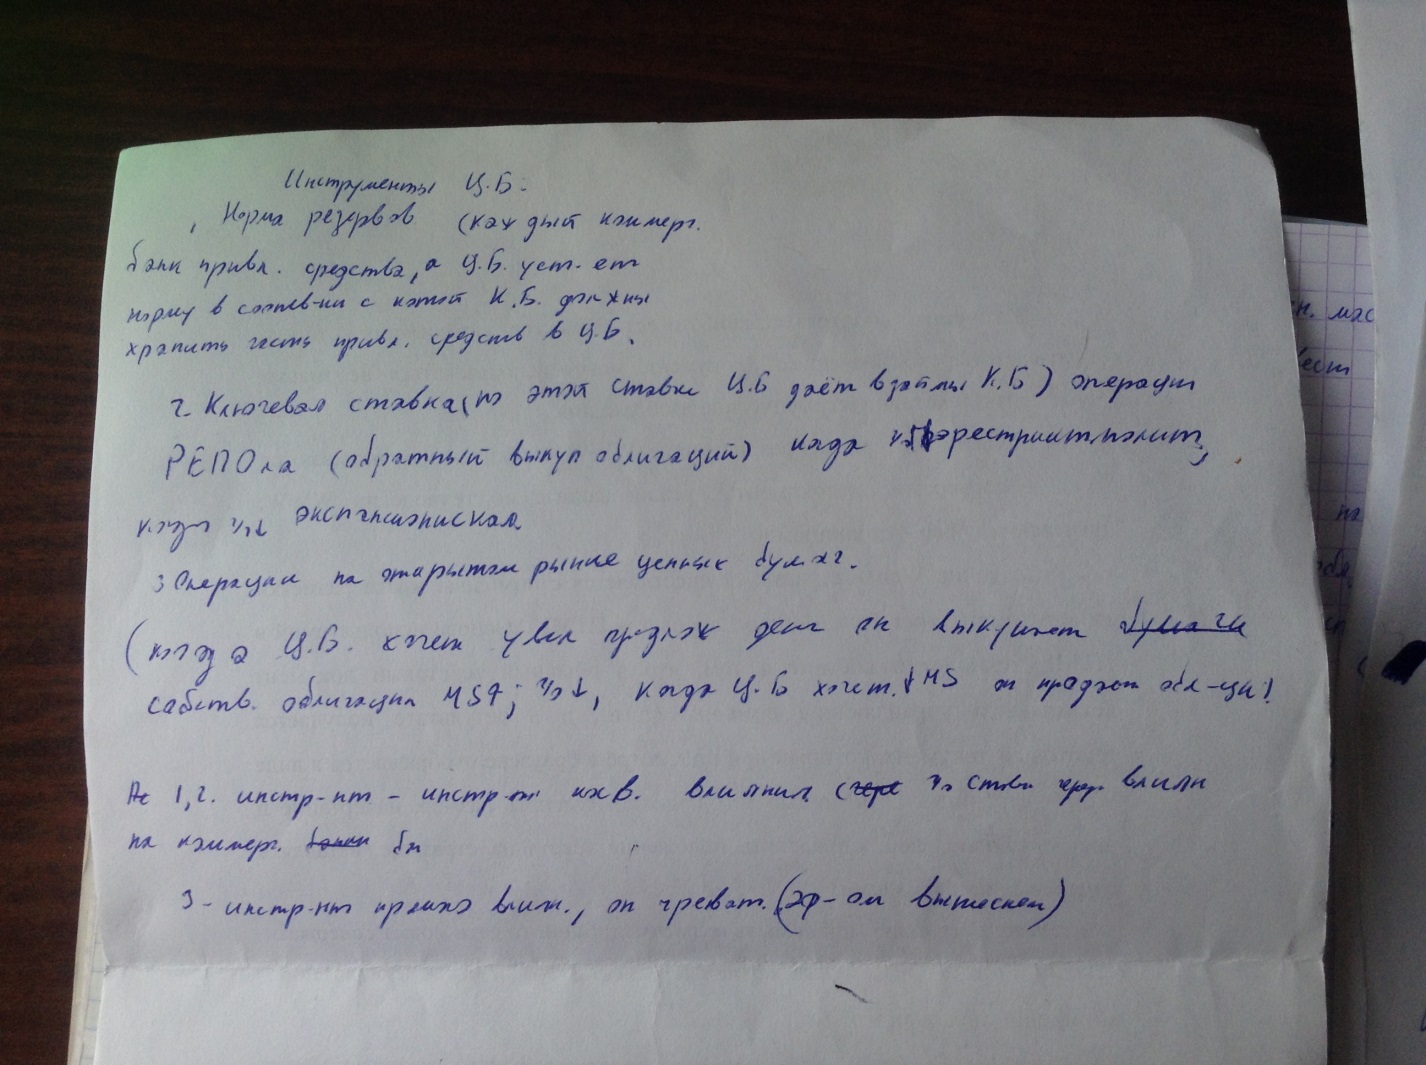 Инструменты Ц.Б:
Норма резервов (каждый коммерч.
банк привл. средства, а Ц.Б. уст-ет
норму в соответ-ии с котой К.Б. должны
хранить часть привл. средств в Ц.Б.
2. Ключевая ставка (по этой ставке Ц.Б даёт взаймы К.Б) операции
РЕПОла (обратный выкуп облигаций) когда рестрикт. полит,
когда %↓ экспансионискал.
3 Операции на открытом рынке ценных бумаг.
(когда Ц.Б. хочет увел предлож денег он выкупает бумаги
собств. облигации MS↑; %↓, Когда Ц.Б хочет. ↓MS он продает обл-ции!
1, 2. инстр-нт - инстр-нт косв. влияния (%ю ставк влиян
на коммерч. банки бн
3 - инстр-нт прямого влиян., он чреват. (эф-ом вытеснен)
н. мас
вест
по